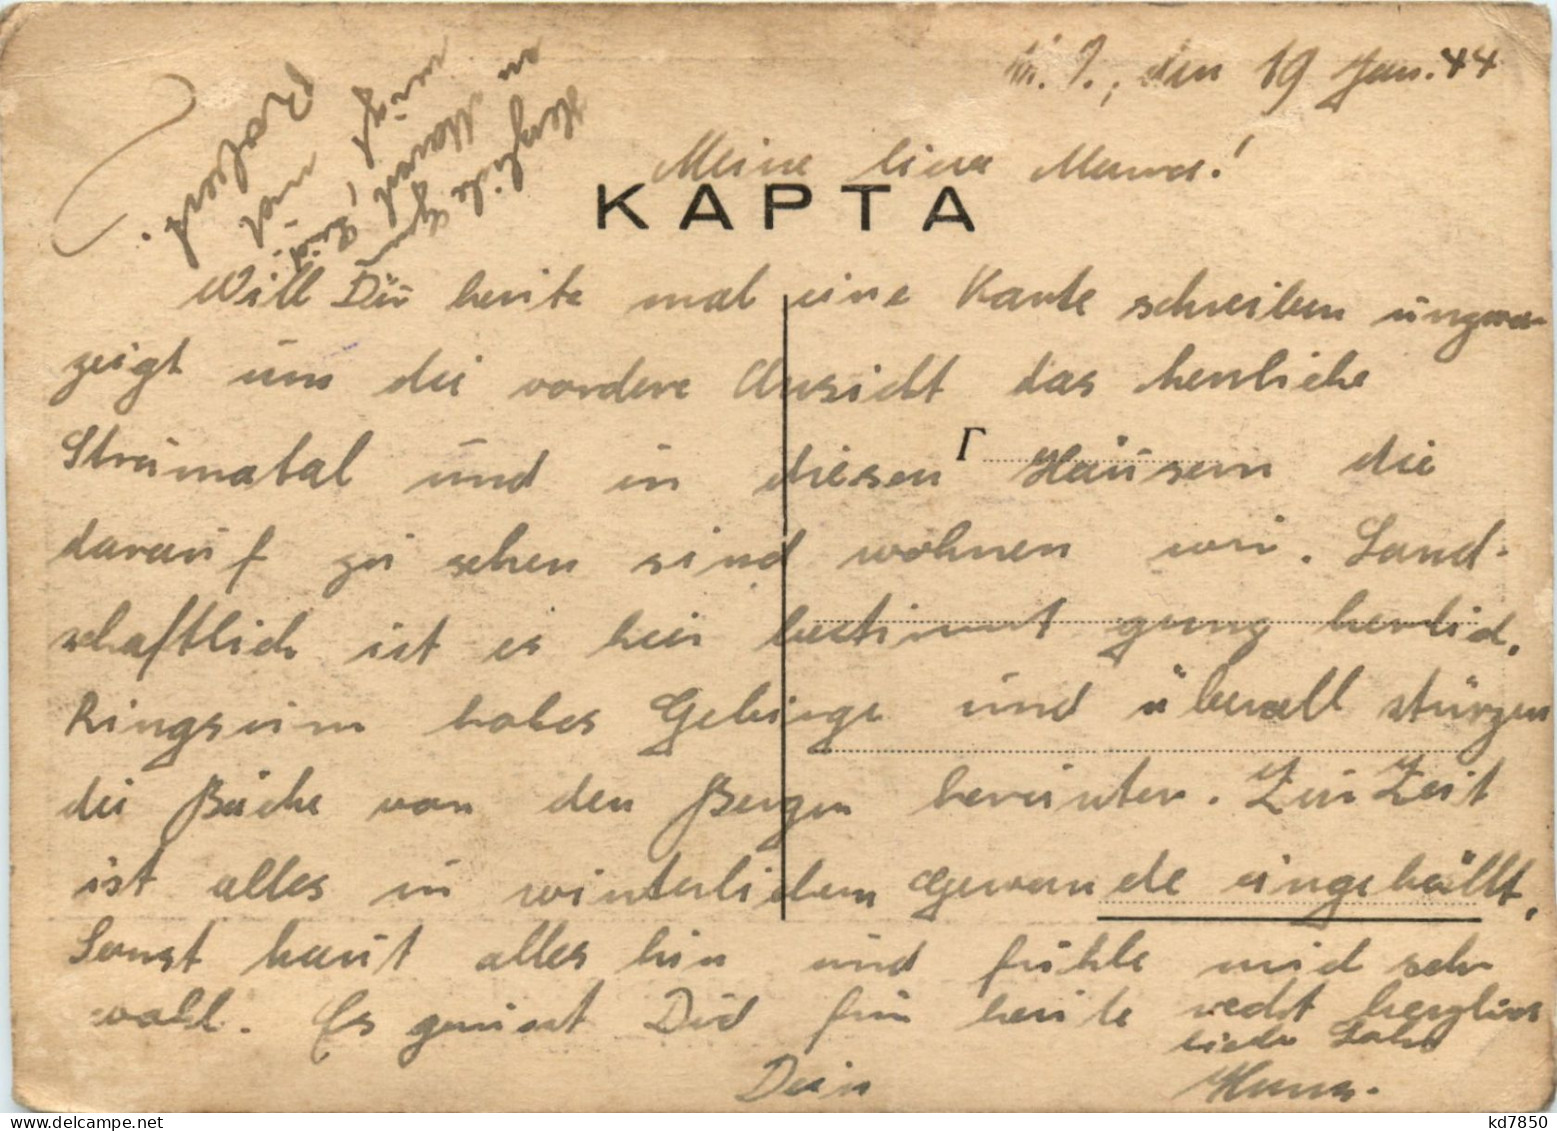 den 19 Jan. 44
Meine liebe Mama!
КАРТА
Will Dir heute mal eine Karte schreiben
zeigt uns die vordere Ansicht das herrliche
Strumatal und in diesen Häusern die
Г
darauf zu sehen sind wohnen wir. Land-
schaftlich ist es hier bestimmt ganz herrlich.
Ringsum hohes Gebirge und überall stürzen
die Bäche von den Bergen herunter. Zur Zeit
ist alles in winterlichem Gewande eingehüllt.
Sonst haut alles hin und fühle mich sehr
wohl. Es grüsst Dich für heute recht herzlich
Dein lieber Sohn
Hans.
Herzliche Grüße
an
und
kd7850